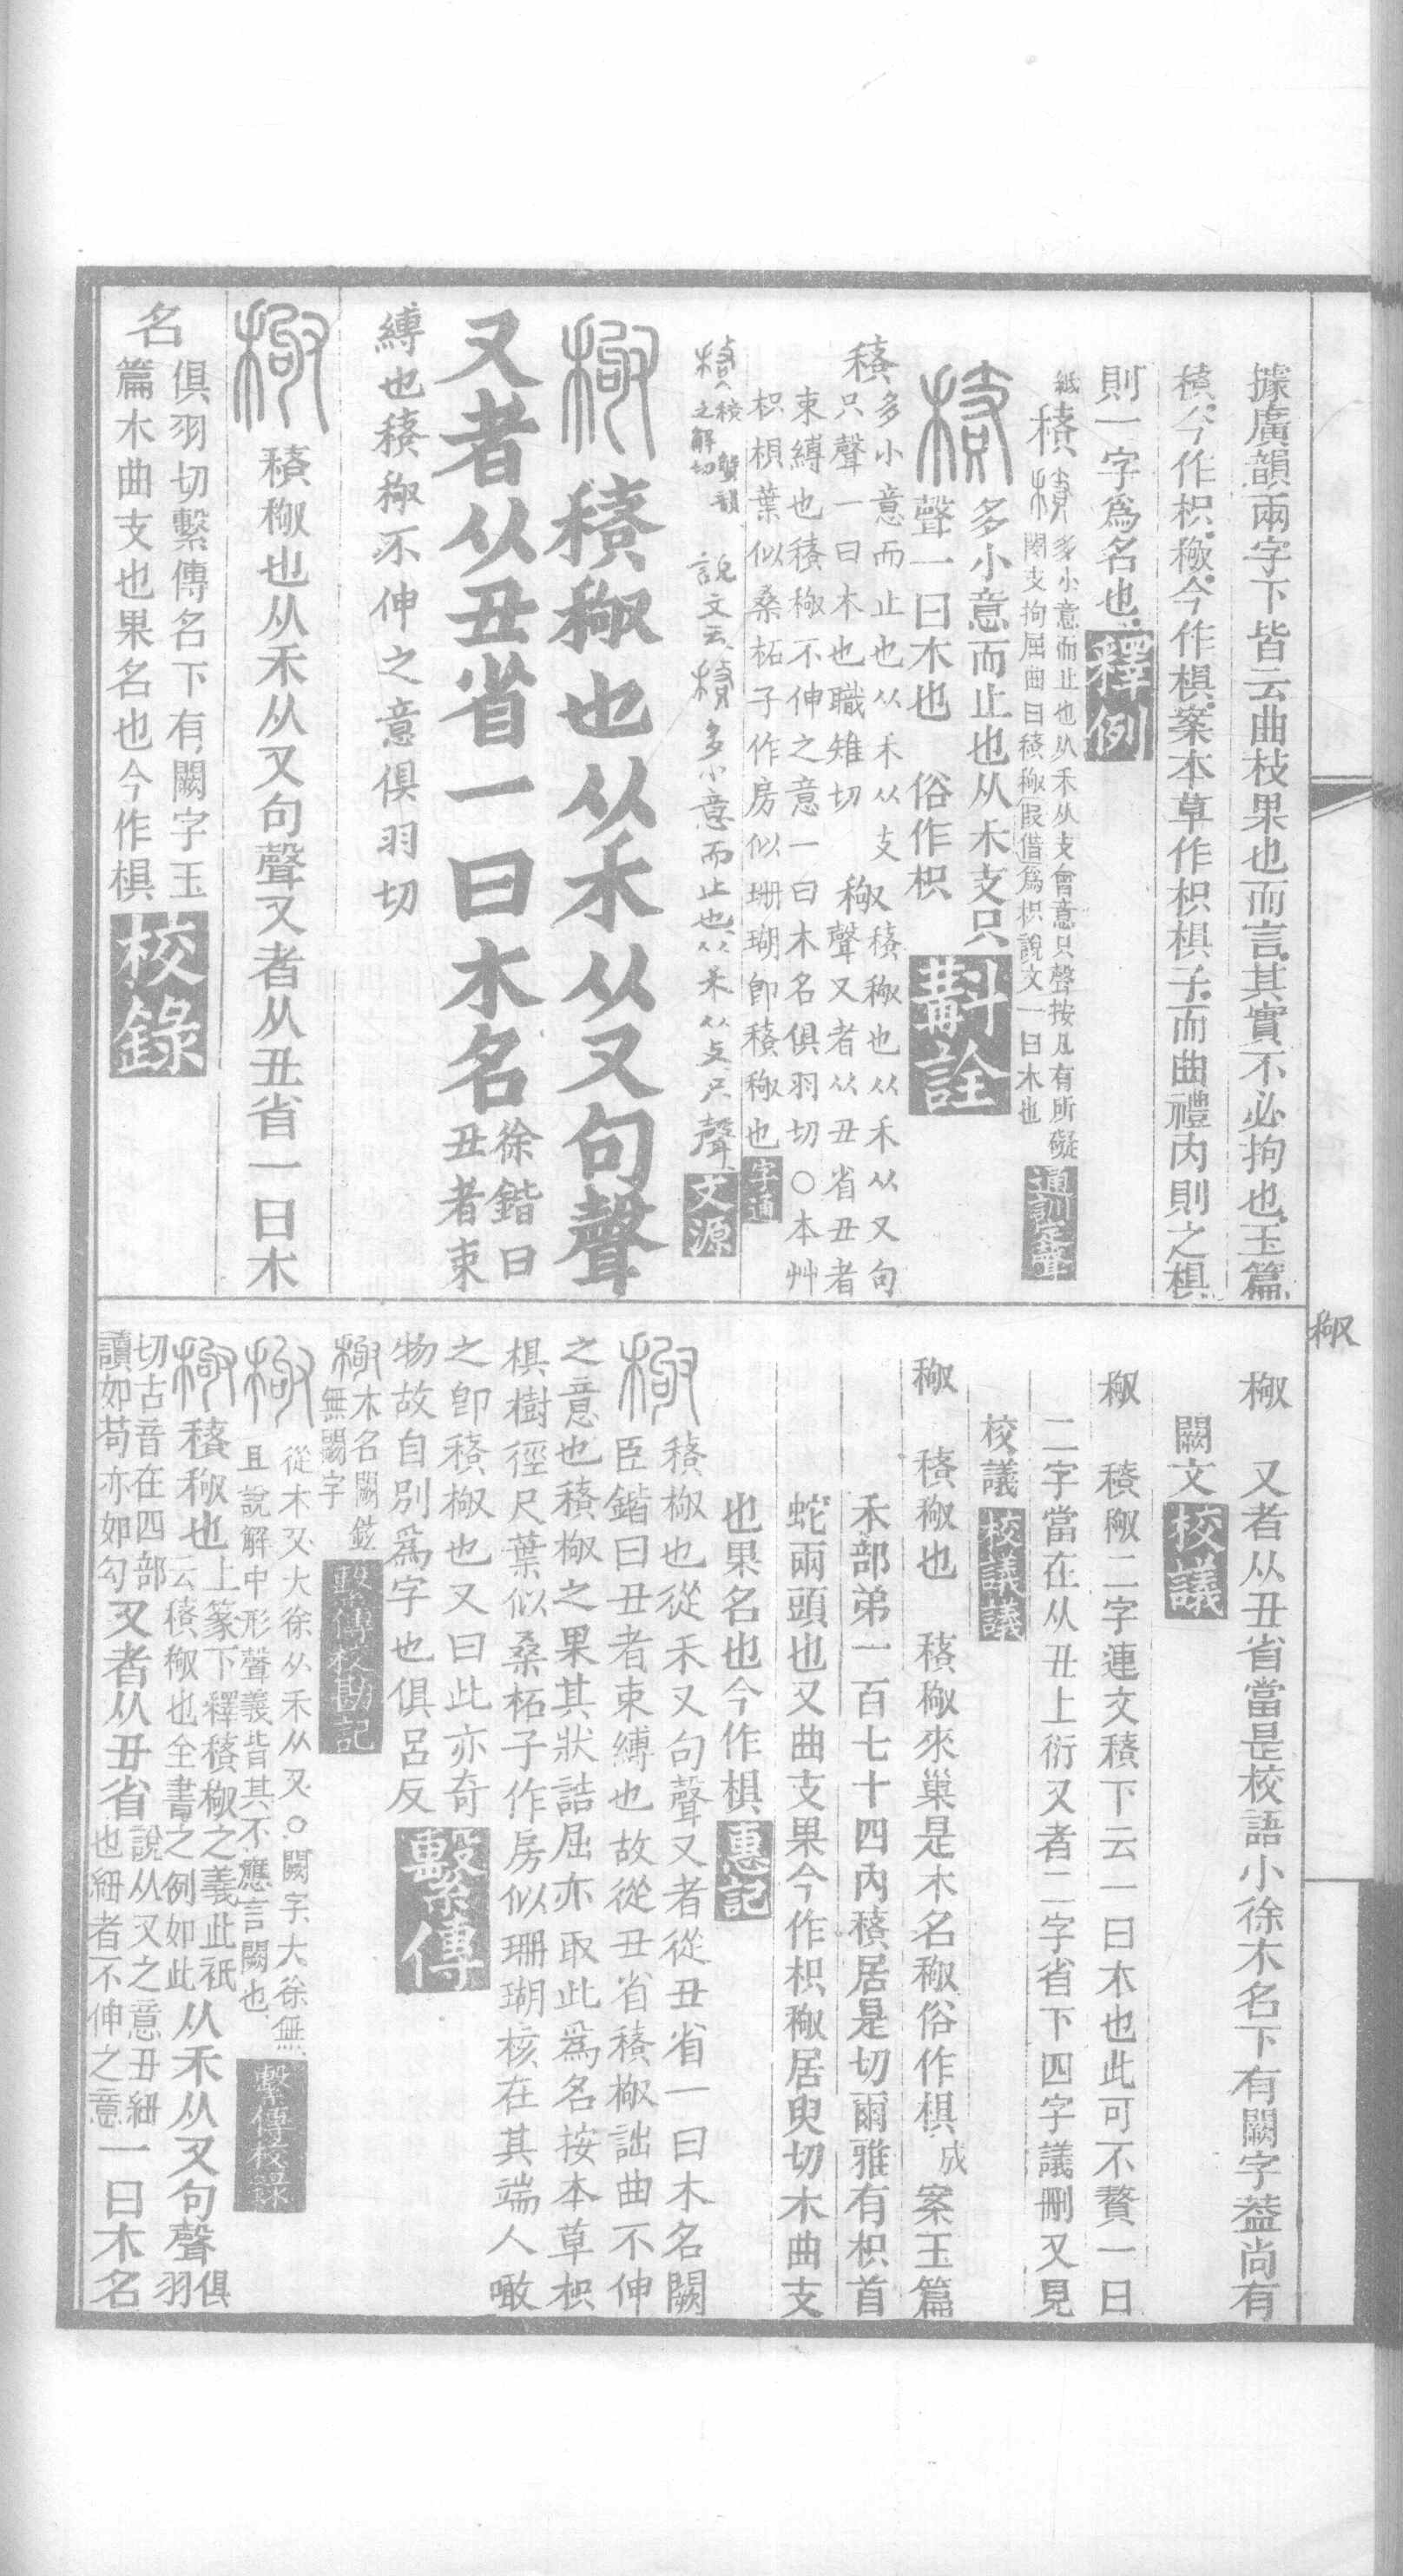 據廣韻兩字下皆云曲枝果也而言其實不必拘也玉篇
𥠻今作枳䅩今作椇案本草作枳椇子而曲禮內則之椇
則一字爲名也釋例
紙𥠻
多小意而止也从禾从支會意只聲按凡有所礙
閡支拘屈曲曰𥠻䅩叚借爲枳說文一曰木也
通訓定聲
多小意而止也从禾支只
聲一曰木也 俗作枳
斠詮
𥠻
多小意而止也从禾从支
只聲一曰木也職雉切
䅩
𥠻䅩也从禾从又句
聲又者从丑省丑者
束縛也𥠻䅩不伸之意一曰木名俱羽切○本艸
枳椇葉似桑柘子作房似珊瑚卽𥠻䅩也字通
說文云𥠻多小意而止也从禾从支只聲文源
𥠻䅩也从禾从又句聲
又者从丑省一曰木名
徐鍇曰
丑者束
縛也𥠻䅩不伸之意俱羽切
𥠻䅩也从禾从又句聲又者从丑省一曰木
名
俱羽切繫傳名下有闕字玉
篇木曲支也果名也今作椇
校錄
䅩
䅩 又者从丑省當是校語小徐木名下有闕字葢尚有
闕文校議
䅩 𥠻䅩二字連文𥠻下云一曰木也此可不贅一曰
二字當在从丑上衍又者二字省下四字議刪又見
校議校議議
䅩 𥠻䅩也 𥠻䅩來巢是木名䅩俗作椇成案玉篇
禾部弟一百七十四內𥠻居是切爾雅有枳首
蛇兩頭也又曲支果今作枳䅩居臾切木曲支
也果名也今作椇惠記
𥠻䅩也從禾又句聲又者從丑省一曰木名闕
臣鍇曰丑者束縛也故從丑省𥠻䅩詘曲不伸
之意也𥠻䅩之果其狀詰屈亦取此爲名按本草枳
椇樹徑尺葉似桑柘子作房似珊瑚核在其端人噉
之卽𥠻䅩也又曰此亦奇
物故自別爲字也俱呂反
繫傳
木名闕鉉
無闕字
繫傳校勘記
從木又大徐从禾从又○闕字大徐無
且說解中形聲義皆具不應言闕也
繫傳校錄
𥠻䅩也
上篆下釋𥠻䅩之義此衹
云𥠻䅩也全書之例如此
从禾从又句聲
俱羽
切古音在四部
讀如苟亦如勾
又者从丑省
說从又之意丑紐
也紐者不伸之意
一曰木名